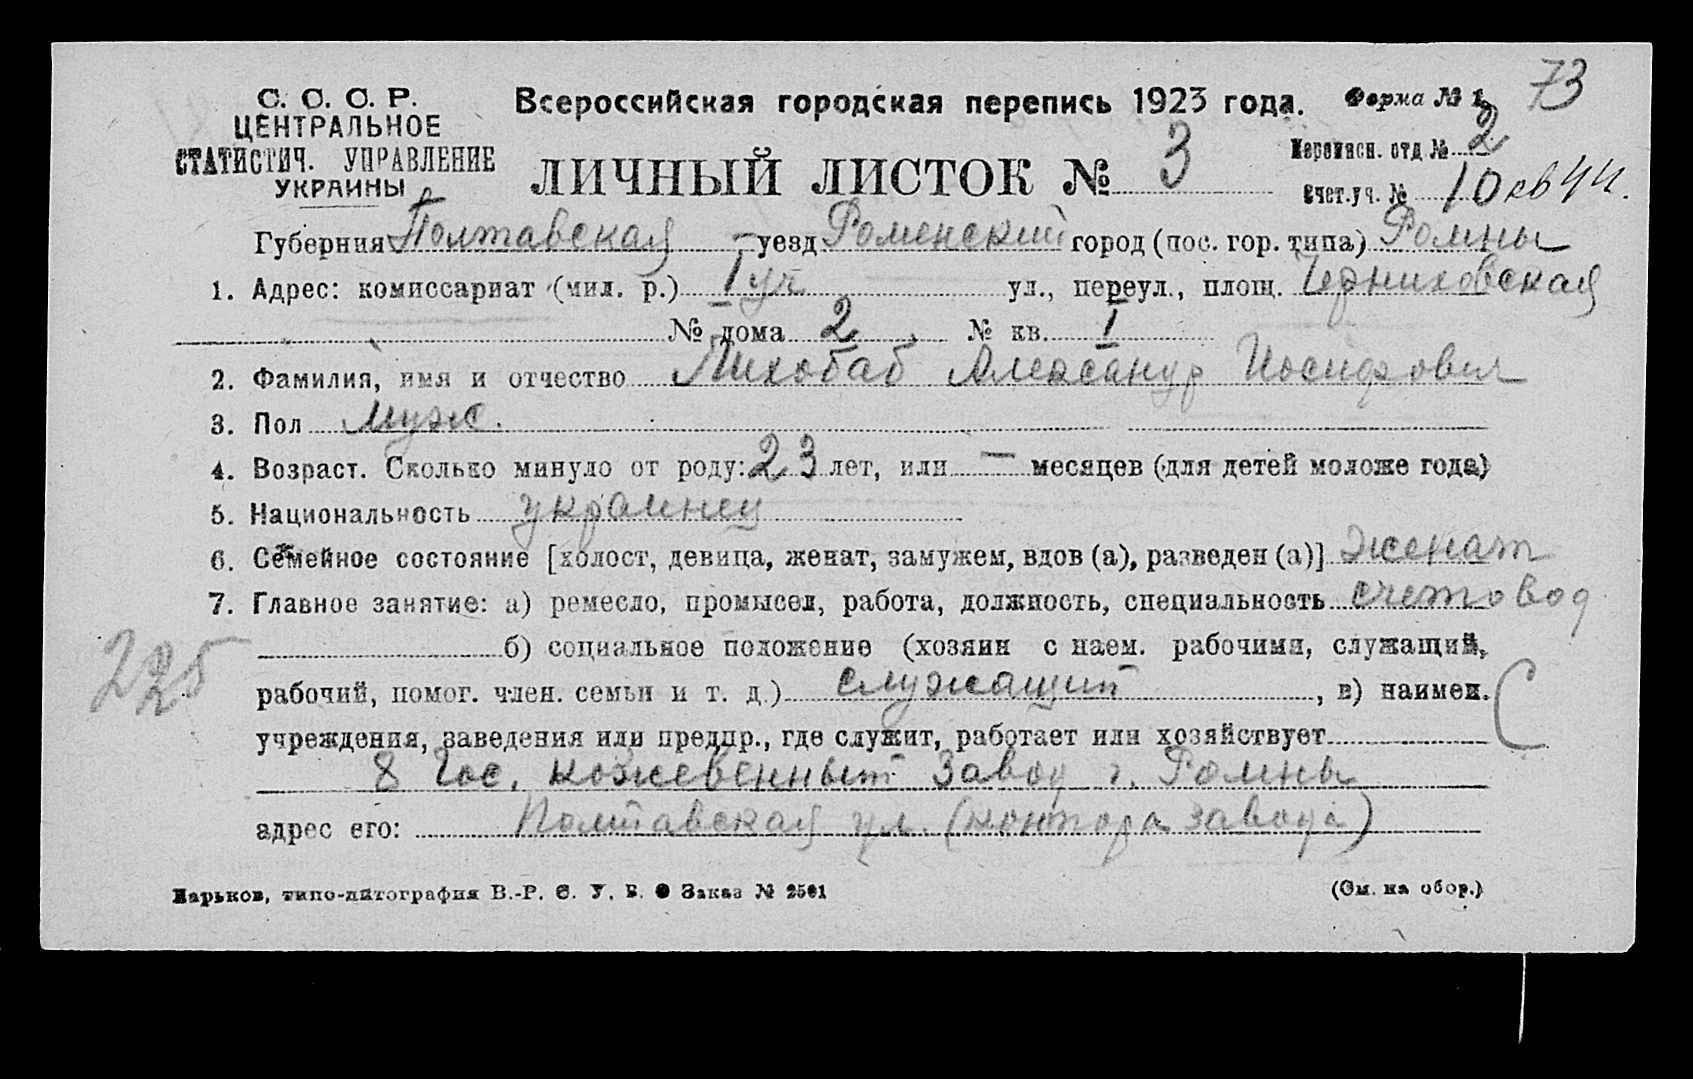 С. С. С. Р.
ЦЕНТРАЛЬНОЕ
СТАТИСТИЧ. УПРАВЛЕНИЕ
УКРАИНЫ
Всероссийская городская перепись 1923 года.
Форма № 1
73
ЛИЧНЫЙ ЛИСТОК № 3
Переписн. отд. № 2
Счет. уч. № 10
Губерния Полтавская уезд Роменский город (пос. гор. типа) Ромны
1. Адрес: комиссариат (мил. р.) I уч. ул., переул., площ. Черниховская
№ дома 2 № кв. I
2. Фамилия, имя и отчество Лихобаб Александр Иосифович
3. Пол муж.
4. Возраст. Сколько минуло от роду: 23 лет, или — месяцев (для детей моложе года)
5. Национальность украинец
6. Семейное состояние [холост, девица, женат, замужем, вдов (а), разведен (а)] женат
7. Главное занятие: а) ремесло, промысел, работа, должность, специальность счетовод
б) социальное положение (хозяин с наем. рабочими, служащий,
225
рабочий, помог. член. семьи и т. д.) служащий, в) наимен.
учреждения, заведения или предпр., где служит, работает или хозяйствует
8 Гос. кожевенный завод г. Ромны
адрес его: Полтавская ул. (контора завода)
Харьков, типо-литография В.-Р. С. У. В. Заказ № 2501
(См. на обор.)